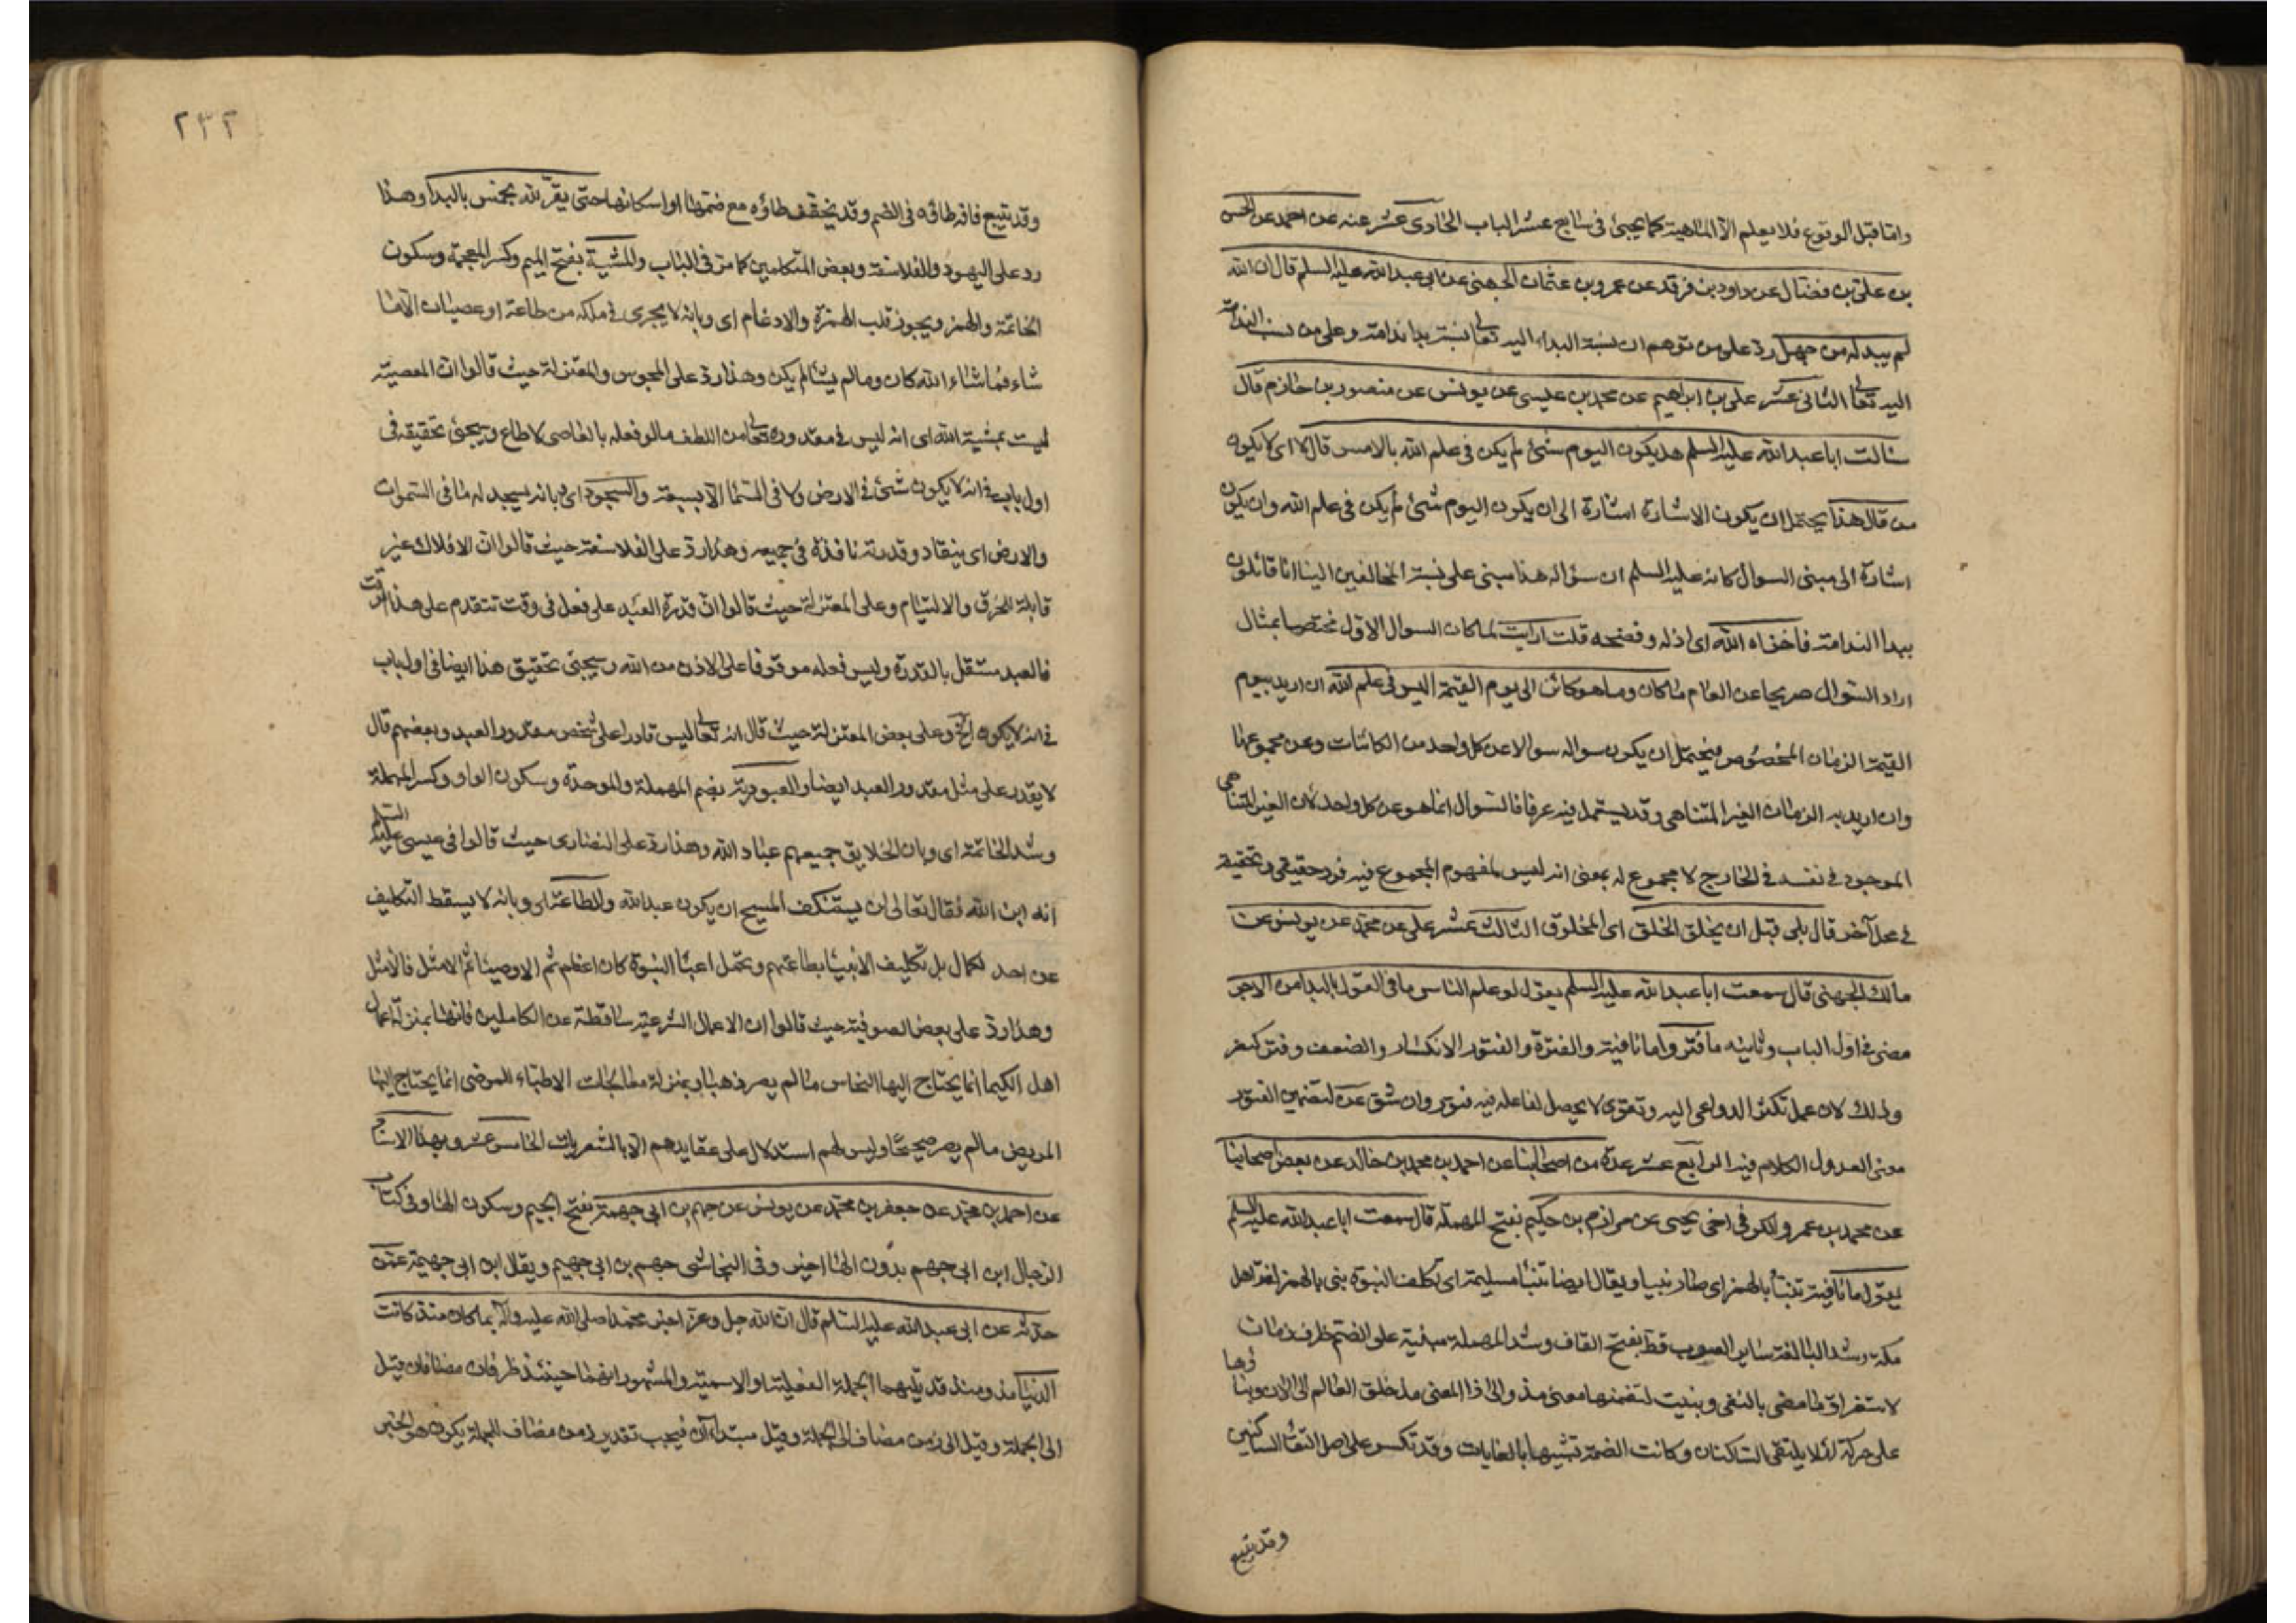 واما قبل الوقوع فلا يعلم الا الماهية كما يجيئ في سابع عشر الباب الحادى عشر عنه عن احمد عن الحسن
بن على بن فضال عن داود بن فرقد عن عمرو بن عثمان الجهنى عن ابى عبد الله عليه السلم قال ان الله
لم يبد له من جهل رد على من توهم ان نسبة البداء اليه تعالى نسبة بداء ندامة وعلى من نسب الندامة
اليه تعالى الثانى عشر على بن ابراهيم عن محمد بن عيسى عن يونس عن منصور بن حازم قال
سالت ابا عبد الله عليه السلم هل يكون اليوم شئ لم يكن في علم الله بالامس قال لا اى لا يكون
من قال هذا يحتمل ان يكون الاشارة اشارة الى ان يكون اليوم شئ لم يكن في علم الله وان يكون
اشارة الى مبنى السوال كانه عليه السلم ان سؤاله هذا مبنى على نسبة المخالفين الينا انا قائلون
ببدا الندامة فاخزاه الله اى اذله وفضحه قلت ارايت لما كان السوال الاول مختصا بمثال
اراد السوال صريحا عن العام ما كان وما هو كائن الى يوم القيمة اليس في علم الله ان اريد بيوم
القيمة الزمان المخصوص فيحتمل ان يكون سواله سوالا عن كل واحد من الكائنات وعن مجموعها
وان اريد به الزمان الغير المتناهى وقد يستعمل فيه عرفا فالسوال انما هو عن كل واحد لان الغير المتناهى
الموجود في نفسه في الخارج لا مجموع له بمعنى انه ليس لمفهوم المجموع فيه فرد حقيقى وتحقيقه
في محل آخر قال بلى قبل ان يخلق الخلق اى المخلوق الثالث عشر على عن محمد عن يونس عن
مالك الجهنى قال سمعت ابا عبد الله عليه السلم يقول لو علم الناس ما في القول بالبدا من الاجر
مضى في اول الباب وثانيه ما فتروا ما نافية والفترة والفتور الانكسار والضعف وفتر كنصر
وذلك لان عمل تكثر الدواعى اليه وتقوى لا يحصل لفاعله فيه فتور وان شق عن لتضمين الفتور
معنى العدول الكلام فيه الرابع عشر عدة من اصحابنا عن احمد بن محمد بن خالد عن بعض اصحابنا
عن محمد بن عمرو الكوفى اخى يحيى عن مرازم بن حكيم بفتح المهملة قال سمعت ابا عبد الله عليه السلم
يقول ما نافية تنبأ بالهمز اى صار نبيا ويقال ايضا تنبأ مسيلمة اى تكلف النبوة نبى بالهمز لغة اهل
مكة وشد اليا لغة ساير العرب قط بفتح القاف وشد المهملة مبنية على الضم ظرف زمان
لاستغراق ما مضى بالنفى وبنيت لتضمنها معنى مذ والى اذ المعنى مذ خلق العالم الى الان وبناؤها
على حركة لئلا يلتقى الساكنان وكانت الضمة تشبيها بالغايات وقد تكسر على اصل التقاء الساكنين
وقد يتبع
٢٣٢
وقد يتبع قافه طاؤه في الضم وقد يخفف طاؤه مع ضمها او اسكانها حتى يقر لله بخمس بالبدا وهذا
رد على اليهود والفلاسفة وبعض المتكلمين كما مر في الباب والمشية بفتح الميم وكسر المعجمة وسكون
الخاتمة والهمز ويجوز قلب الهمزة والادغام اى وبانه لا يجرى في ملكه من طاعة او عصيان الا ما
شاء فما شاء الله كان وما لم يشا لم يكن وهذا رد على المجوس والمعتزلة حيث قالوا ان المعصية
ليست بمشية الله اى انه ليس في مقدوره تعالى من اللطف ما لو فعله بالعاصى لاطاع ويجئ تحقيقه في
اول باب في انه لا يكون شئ في الارض ولا في السما الا بسبعة والسجود اى بانه يسجد له ما في السموات
والارض اى ينقاد وقدرته نافذة في جميعه وهذا رد على الفلاسفة حيث قالوا ان الافلاك غير
قابلة للخرق والالتيام وعلى المعتزلة حيث قالوا ان قدرة العبد على فعل في وقت تتقدم على هذا الوقت
فالعبد مستقل بالقدرة وليس فعله موقوفا على الاذن من الله ويجئ تحقيق هذا ايضا في اول باب
في انه لا يكون الخ وعلى بعض المعتزلة حيث قال انه تعالى ليس قادرا على شخص مقدور العبد وبعضهم قال
لا يقدر على مثل مقدور العبد ايضا والعبودية بضم المهملة والموحدة وسكون الواو وكسر المهملة
وشد الخاتمة اى وبان الخلايق جميعهم عباد الله وهذا رد على النصارى حيث قالوا في عيسى عليه السلم
انه ابن الله فقال تعالى لن يستنكف المسيح ان يكون عبدا لله والطاعة اى وبانه لا يسقط التكليف
عن احد لكمال بل تكليف الانبيا بطاعتهم وتحمل اعباء النبوة كان اعظم ثم الاوصيا ثم الامثل فالامثل
وهذا رد على بعض الصوفية حيث قالوا ان الاعمال الشرعية ساقطة عن الكاملين فانها بمنزلة اعمال
اهل الكيميا انما يحتاج اليها النحاس ما لم يصر ذهبا وبمنزلة معالجات الاطباء المرضى انما يحتاج اليها
المريض ما لم يصر صحيحا وليس لهم استدلال على عقايدهم الا بالشعريات الخامس عشر وبهذا الاسناد
عن احمد بن محمد عن جعفر بن محمد عن يونس عن جهم بن ابى جهمة بفتح الجيم وسكون الها وفي كتاب
الرجال ابن ابى جهم بدون الها اخير وفى النجاشى جهيم بن ابى جهيم ويقال ابن ابى جهيمة عمن
حدثه عن ابى عبد الله عليه السلم قال ان الله جل وعز اخبر محمدا صلى الله عليه وآله بما كان منذ كانت
الدنيا مذ ومنذ قد يليهما الجملة الفعلية او الاسمية والمشهور انهما حينئذ ظرفان مضافان فقيل
الى الجملة وقيل الى زمن مضاف الى الجملة وقيل مبتدءان فيجب تقدير زمن مضاف للجملة يكون هو الخبر